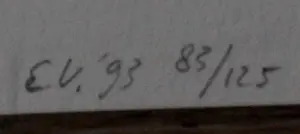 E.V. '93 83/125